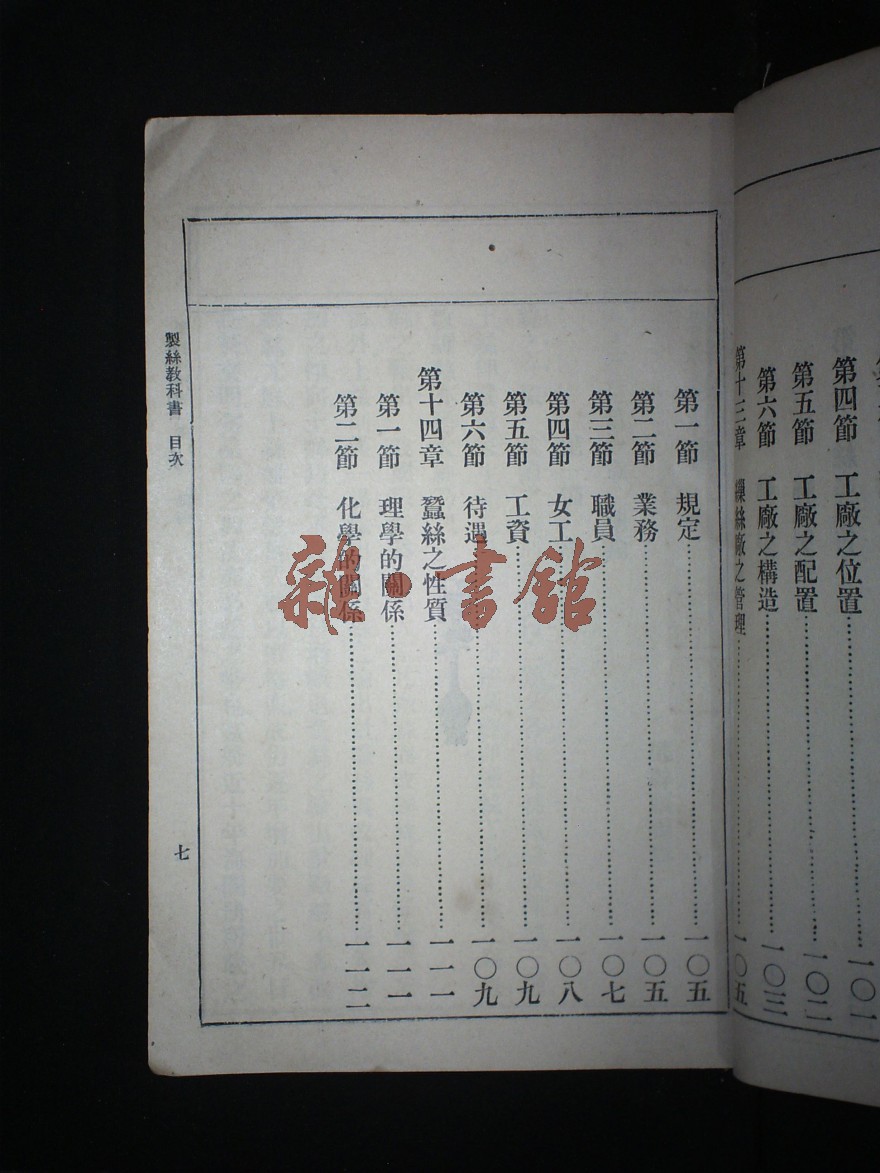 第四節　工廠之位置……一〇一
第五節　工廠之配置……一〇二
第六節　工廠之構造……一〇三
第十三章　繅絲廠之管理……一〇五
第一節　規定……一〇五
第二節　業務……一〇五
第三節　職員……一〇七
第四節　女工……一〇八
第五節　工資……一〇九
第六節　待遇……一〇九
第十四章　蠶絲之性質……一一一
第一節　理學的關係……一一一
第二節　化學的關係……一一二
製絲教科書　目次
七
雜·書館